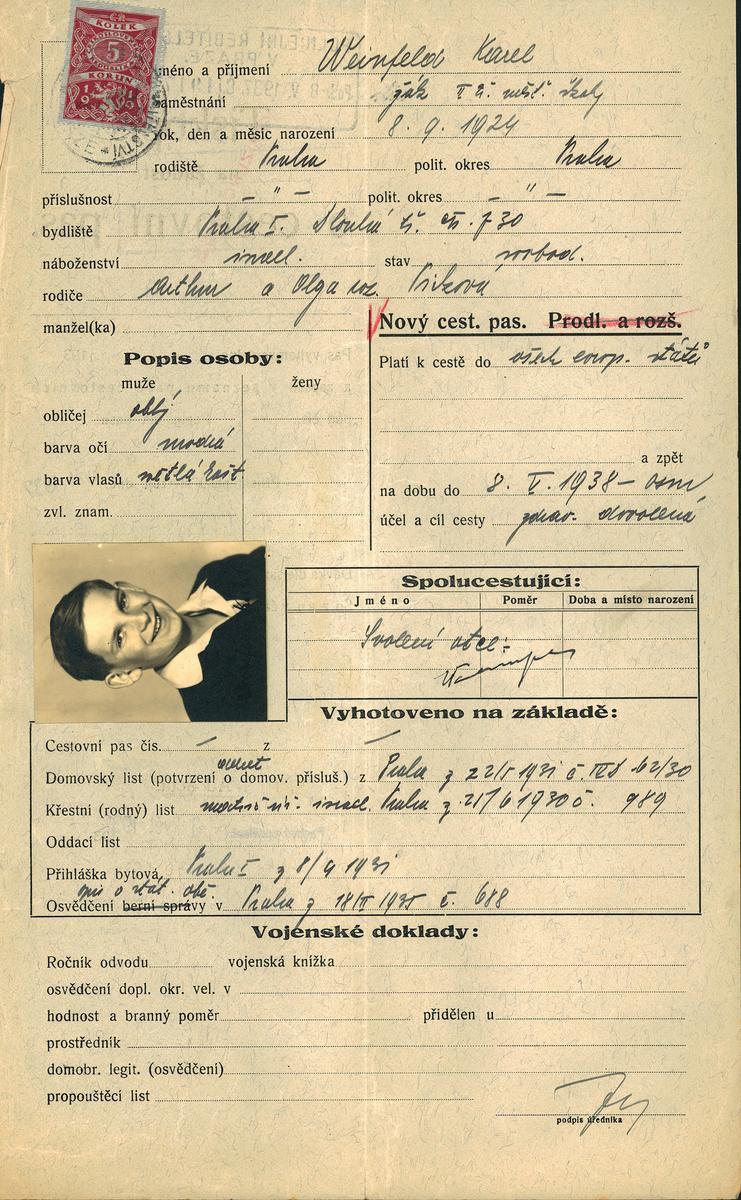 KOLEK
5
KORUN
jméno a příjmení Weinfeld Karel
zaměstnání žák II tř. měšť. školy
rok, den a měsíc narození 8. 9. 1924
rodiště Praha polit. okres Praha
příslušnost — " — polit. okres — " —
bydliště Praha I. Dlouhá tř. čp. 730
náboženství israel. stav svobod.
rodiče Arthur a Olga roz. Picková
manžel(ka)
Nový cest. pas. Prodl. a rozš.
Popis osoby:
muže ženy
obličej oblý
barva očí modrá
barva vlasů světlá kašt.
zvl. znam.
Platí k cestě do všech evrop. států
a zpět
na dobu do 8. V. 1938 – osm
účel a cíl cesty zdrav. dovolená
Spolucestující:
Jméno Poměr Doba a místo narození
Svolení otce:
Vyhotoveno na základě:
Cestovní pas čís. — z —
Domovský list (potvrzení o domov. přísluš.) z Praha z 22/5 1931 č. 62/30
Křestní (rodný) list israel. Praha z 21/6 1930 č. 989
Oddací list
Přihláška bytová Praha I z 8/9 1931
o stát. obč.
Osvědčení berní správy v Praha z 1935 č. 688
Vojenské doklady:
Ročník odvodu vojenská knížka
osvědčení dopl. okr. vel. v
hodnost a branný poměr přidělen u
prostředník
domobr. legit. (osvědčení)
propouštěcí list
podpis úředníka